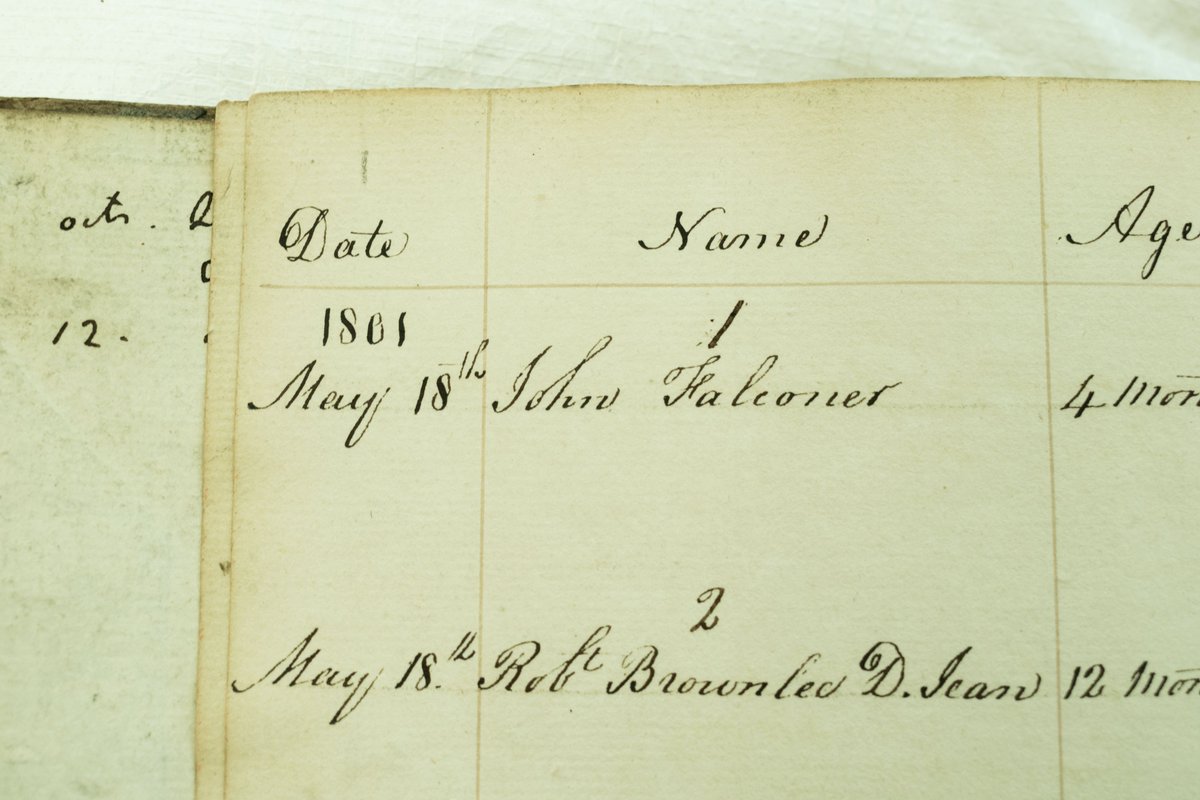 octr. 2
12.
1
Date Name Age
1801 1
May 18th John Falconer 4 Mon
2
May 18.th Robt Brownlee D. Jean 12 Mon